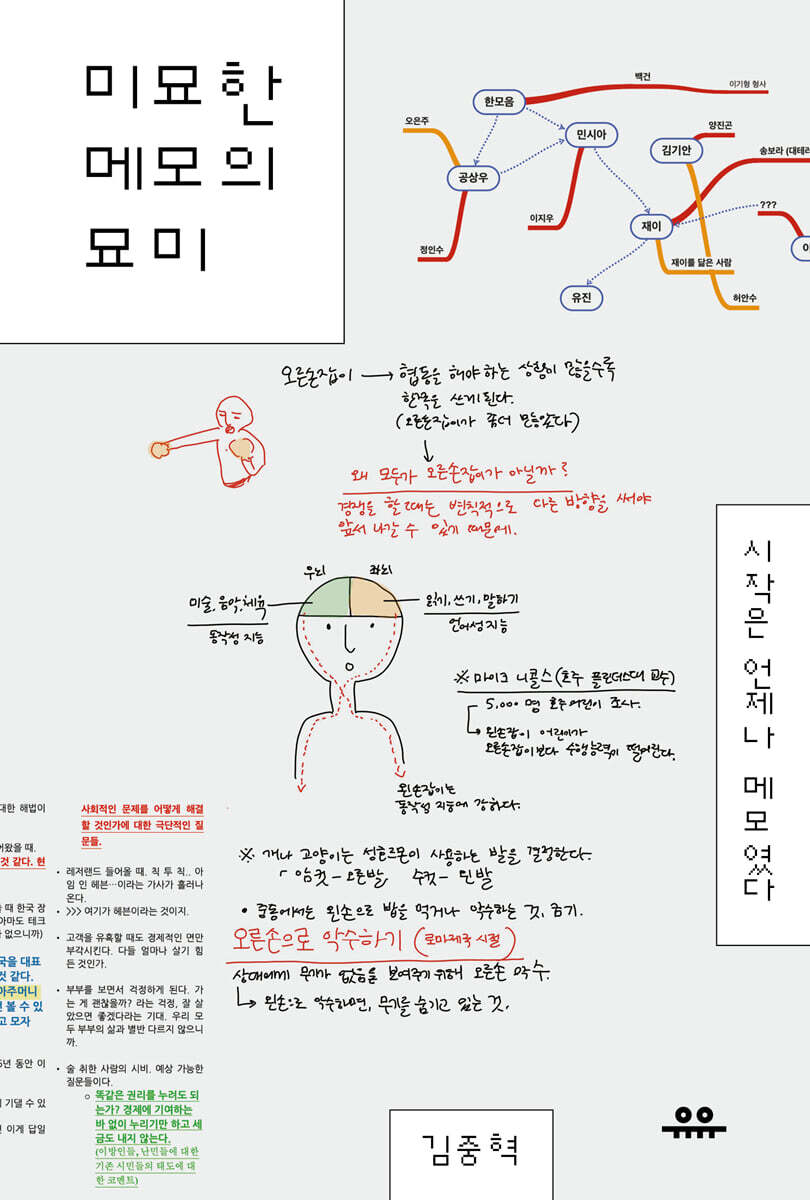 미묘한
메모의
묘미
백건
이기형 형사
한모음
오은주
민시아
양진곤
김기안
송보라 (대테러
공상우
???
이지우
재이
정인수
재이를 닮은 사람
유진
허안수
오른손잡이 → 협동을 해야 하는 상황이 많을수록
한쪽을 쓰게 된다.
(오른손잡이가 좀더 많았다)
왜 모두가 오른손잡이가 아닐까?
경쟁을 할 때는 변칙적으로 다른 방향을 써야
앞서 나갈 수 있기 때문에.
시작은 언제나 메모였다
우뇌 좌뇌
미술, 음악, 체육
동작성 지능
읽기, 쓰기, 말하기
언어성 지능
※ 마이크 니콜스 (호주 플린더스대 교수)
5,000 명 호주 어린이 조사.
왼손잡이 어린이가
오른손잡이보다 수행능력이 떨어진다.
왼손잡이는
동작성 지능에 강하다.
※ 개나 고양이는 성호르몬이 사용하는 발을 결정한다.
암컷 - 오른발, 수컷 - 왼발
• 중동에서는 왼손으로 밥을 먹거나 악수하는 것, 금기.
오른손으로 악수하기 (로마제국 시절)
상대에게 무기가 없음을 보여주기 위해 오른손 악수.
왼손으로 악수하면, 무기를 숨기고 있는 것.
대한 해법이
어왔을 때.
것 같다. 현
을 때 한국 장
아마도 테크
없으니까)
국을 대표
것 같다.
아주머니
볼 수 있
고 모자
5년 동안 이
기댈 수 있
이게 답일
사회적인 문제를 어떻게 해결
할 것인가에 대한 극단적인 질
문들.
• 레저랜드 들어올 때. 칙 투 칙.. 아
임 인 헤븐…이라는 가사가 흘러나
온다.
• >>> 여기가 헤븐이라는 것이지.
• 고객을 유혹할 때도 경제적인 면만
부각시킨다. 다들 얼마나 살기 힘
든 것인가.
• 부부를 보면서 걱정하게 된다. 가
는 게 괜찮을까? 라는 걱정, 잘 살
았으면 좋겠다라는 기대. 우리 모
두 부부의 삶과 별반 다르지 않으니
까.
• 술 취한 사람의 시비. 예상 가능한
질문들이다.
○ 똑같은 권리를 누려도 되
는가? 경제에 기여하는
바 없이 누리기만 하고 세
금도 내지 않는다.
(이방인들, 난민들에 대한
기존 시민들의 태도에 대
한 코멘트)
김중혁